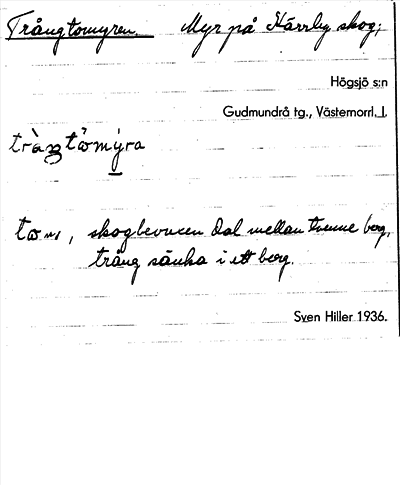 Trångtomyren. Myr på Härrby skog;
Högsjö s:n
Gudmundrå tg., Västernorrl. l.
tom, skogbevuxen dal mellan tvenne berg,
trång sänka i ett berg.
Sven Hiller 1936.